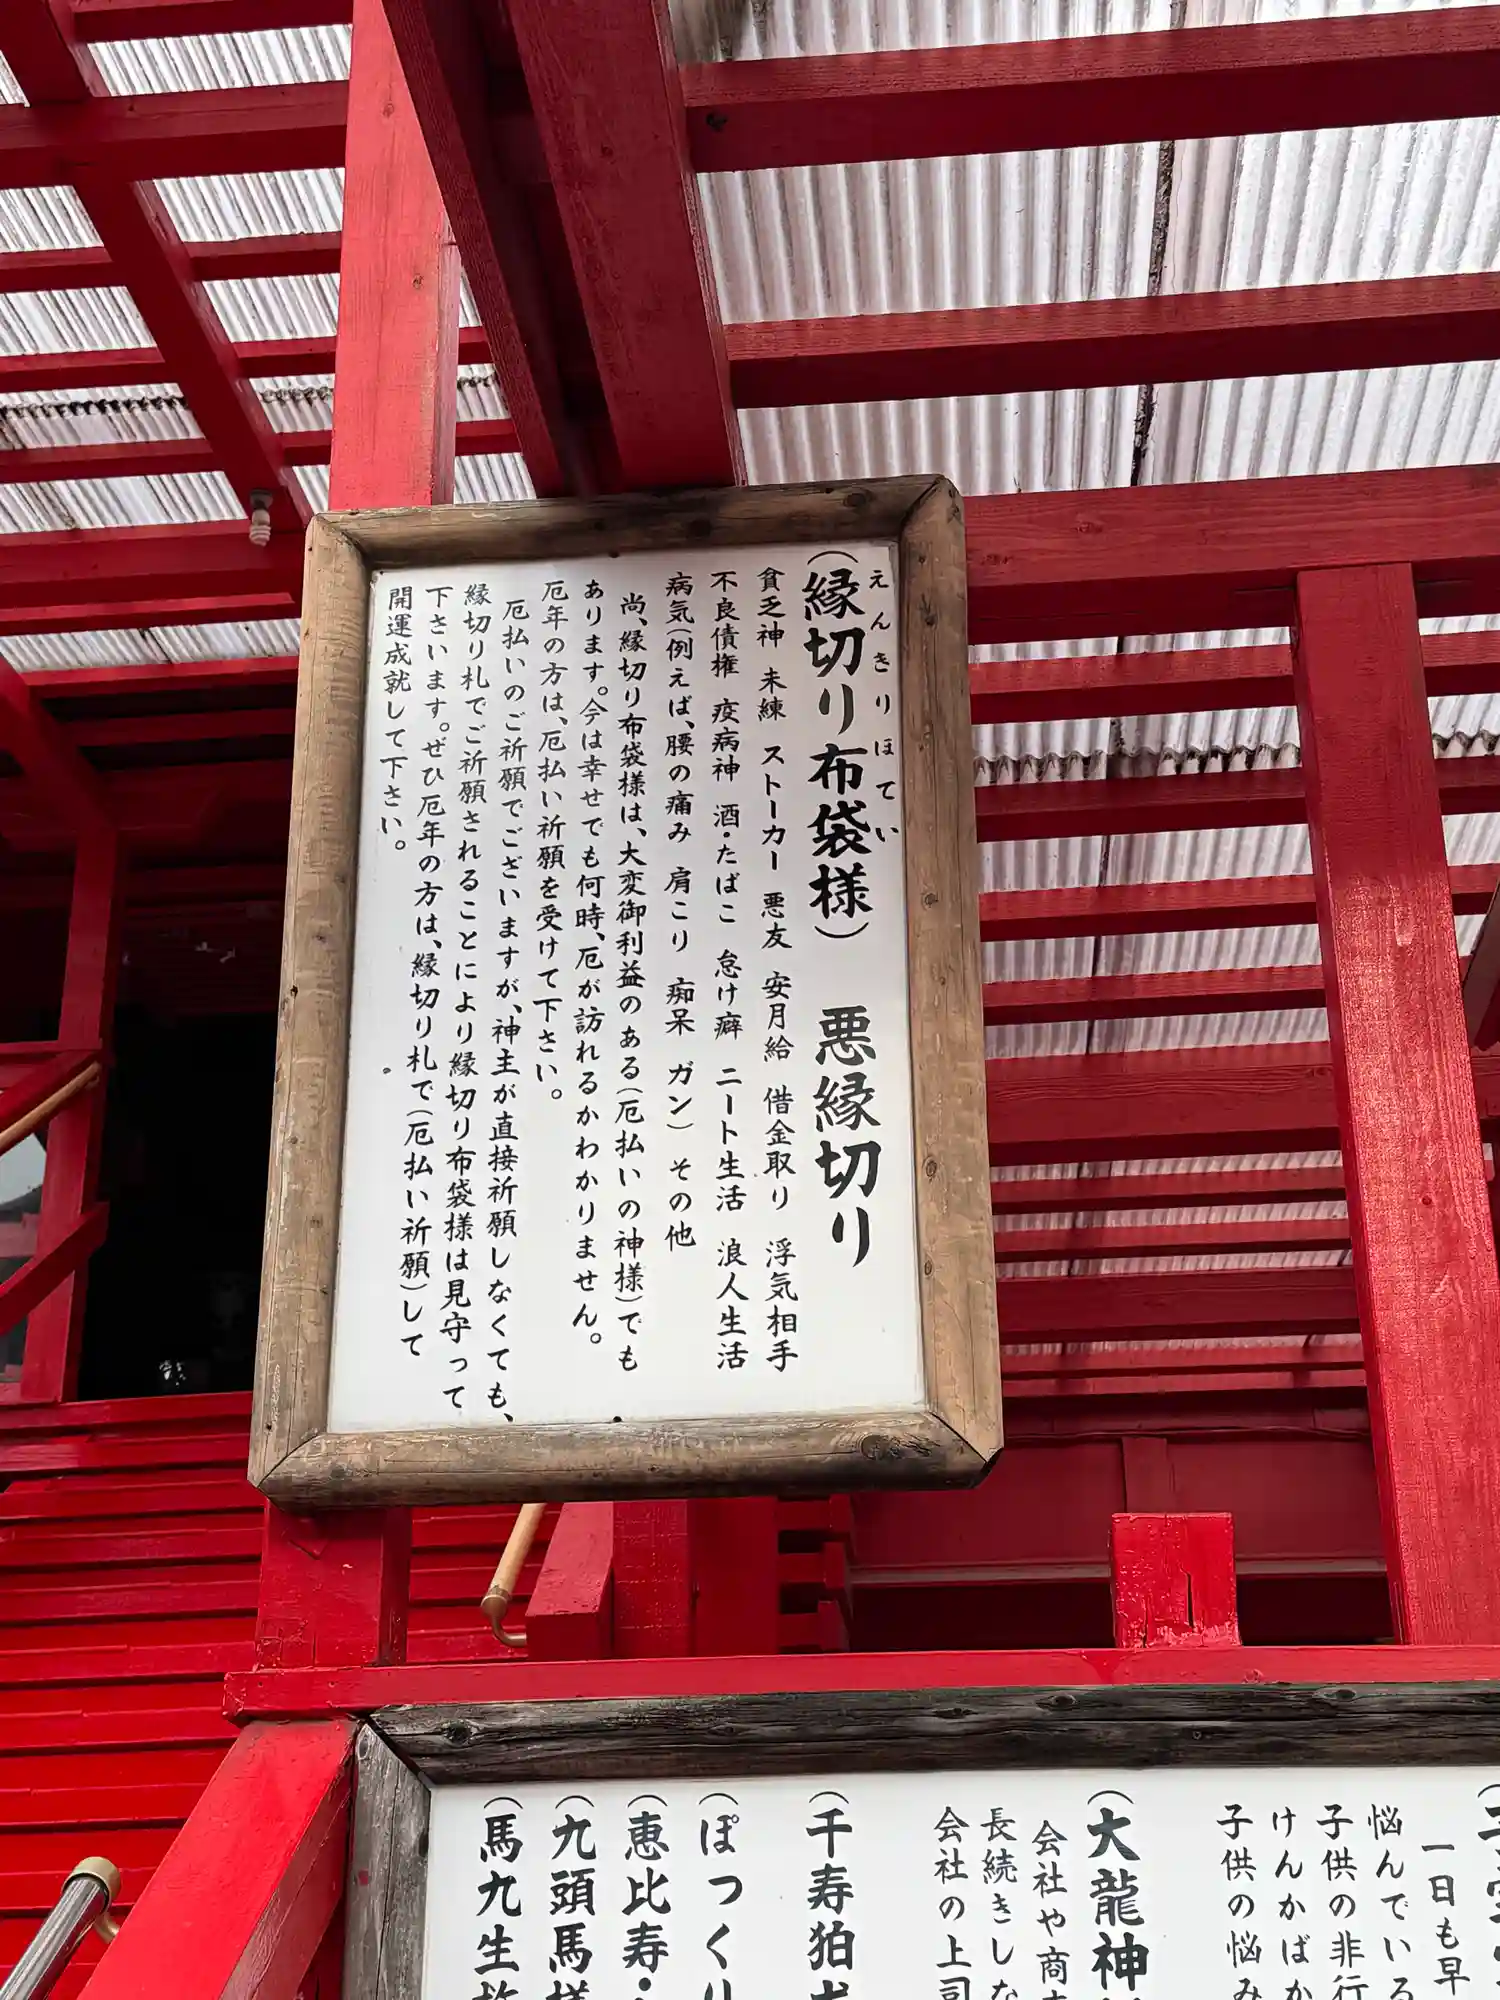 えんきりほてい
(縁切り布袋様) 悪縁切り
貧乏神 未練 ストーカー 悪友 安月給 借金取り 浮気相手
不良債権 疫病神 酒・たばこ 怠け癖 ニート生活 浪人生活
病気(例えば、腰の痛み 肩こり 痴呆 ガン) その他
尚、縁切り布袋様は、大変御利益のある(厄払いの神様)でも
あります。今は幸せでも何時、厄が訪れるかわかりません。
厄年の方は、厄払い祈願を受けて下さい。
厄払いのご祈願でございますが、神主が直接祈願しなくても、
縁切り札でご祈願されることにより縁切り布袋様は見守って
下さいます。ぜひ厄年の方は、縁切り札で(厄払い祈願)して
開運成就して下さい。
一日も早
悩んでいる
子供の非行
けんかばか
子供の悩み
(大龍神
会社や商
長続きしな
会社の上司
(千寿狛
(ぽっくり
(恵比寿・
(九頭馬様
(馬九生